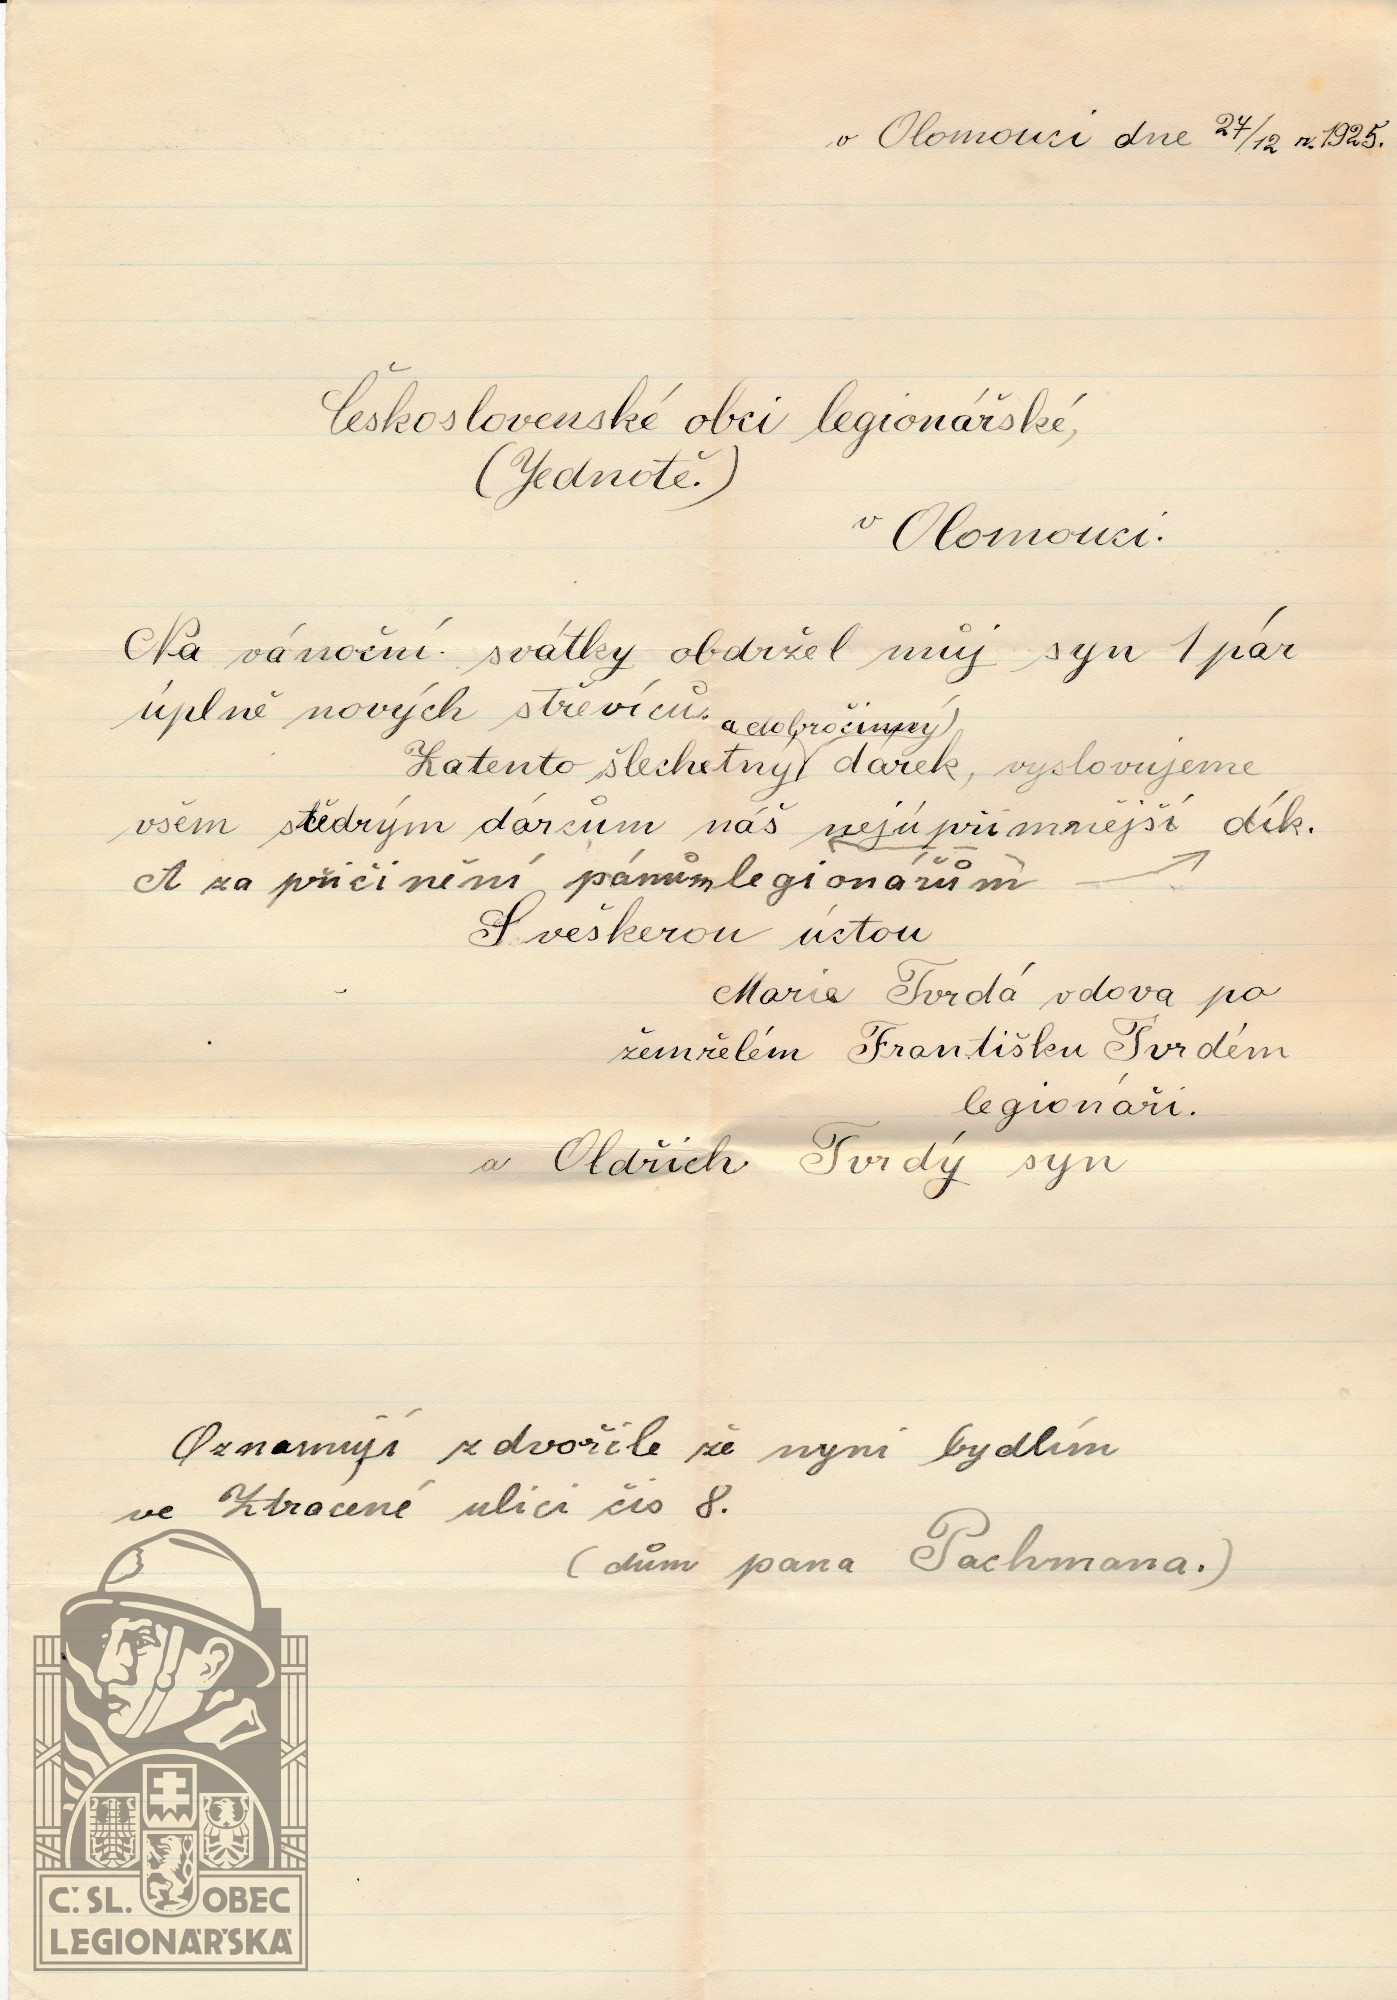 v Olomouci dne 27/12 r. 1925.
Československé obci legionářské,
(Jednotě.)
v Olomouci.
Na vánoční svátky obdržel můj syn 1 pár
úplně nových střevíců.
a dobročinný
Zatento šlechetný dařek, vyslovujeme
všem stědrým dárcům náš nejúpřimnější dík.
A za přičinění pánům legionářům
S veškerou úctou
Marie Tvrdá vdova po
zemřelém Františku Tvrdém
legionáři.
a Oldřich Tvrdý syn
Oznamuji zdvořile že nyni bydlím
ve Ztracené ulici čis 8.
(dům pana Pachmana.)
Č. SL. OBEC
LEGIONÁŘSKÁ